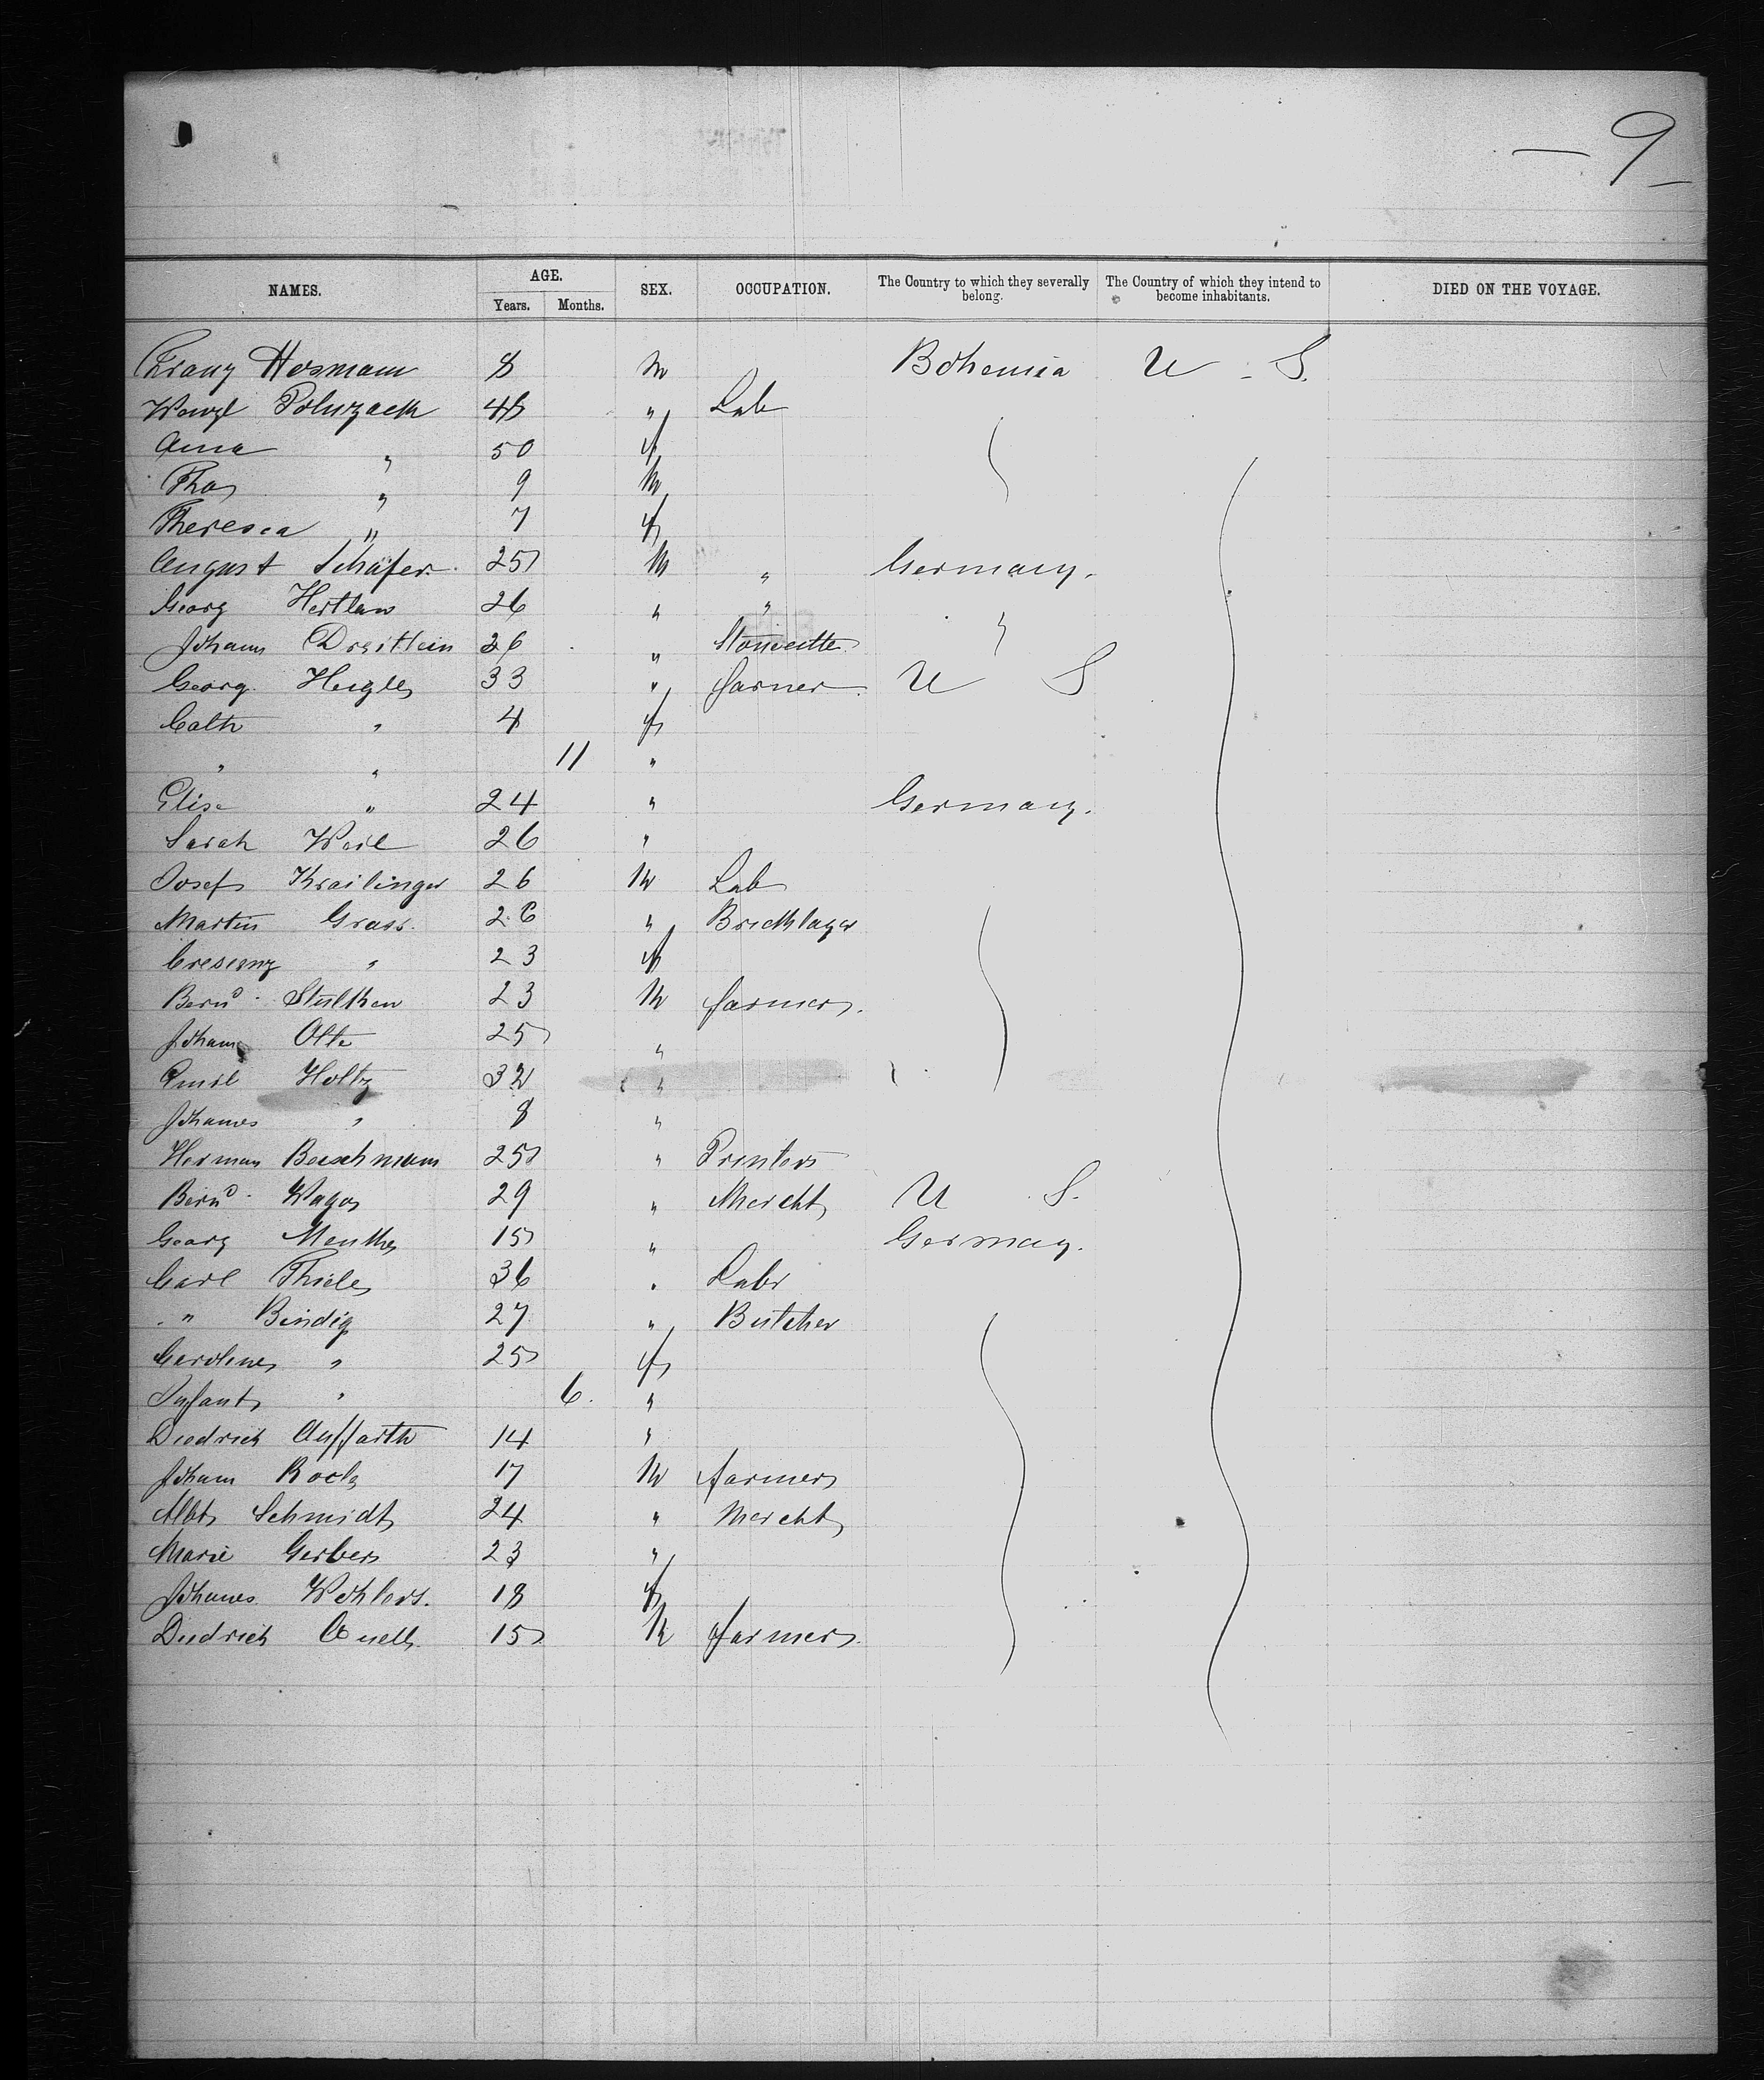 — 9 _
NAMES. AGE. Years. Months. SEX. OCCUPATION. The Country to which they severally belong. The Country of which they intend to become inhabitants. DIED ON THE VOYAGE.
Franz Hosmann 8 M Bohemia U - S.
Wenzl 48 " Lab
Anna " 50 f
" 9 M
Theresia " 7 f
August Schäfer 25 M " Germany.
Georg 26 " " "
Johann Dreittein 26 "
Georg Heigle 33 " farmer U S
Cath " 4 f
" " 11 "
Elise " 24 " Germany.
Sarah Weil 26 "
Josef Krailinger 26 M Lab
Martin Grass. 26 " Bricklayer
Crescenz " 23 f
Bernd. Stulken 23 M farmer.
Johann Otte 25 "
Emil Holtz 32 "
Johannes " 8 "
Herman 25 " Printer
Bernd. 29 " Mercht U S.
Georg Menthe 15 " Germany.
Carl Thiele 36 " Labr
" Bindig 27 " Butcher
Caroline " 25 f
Infant " 6. "
Diedrich Auffarth 14 "
Johann Rock 17 M farmer
Albt Schmidt 24 " Mercht
Marie Gerbers 23 "
Johannes Wohlers. 18 f
Diedrich 15 M farmer